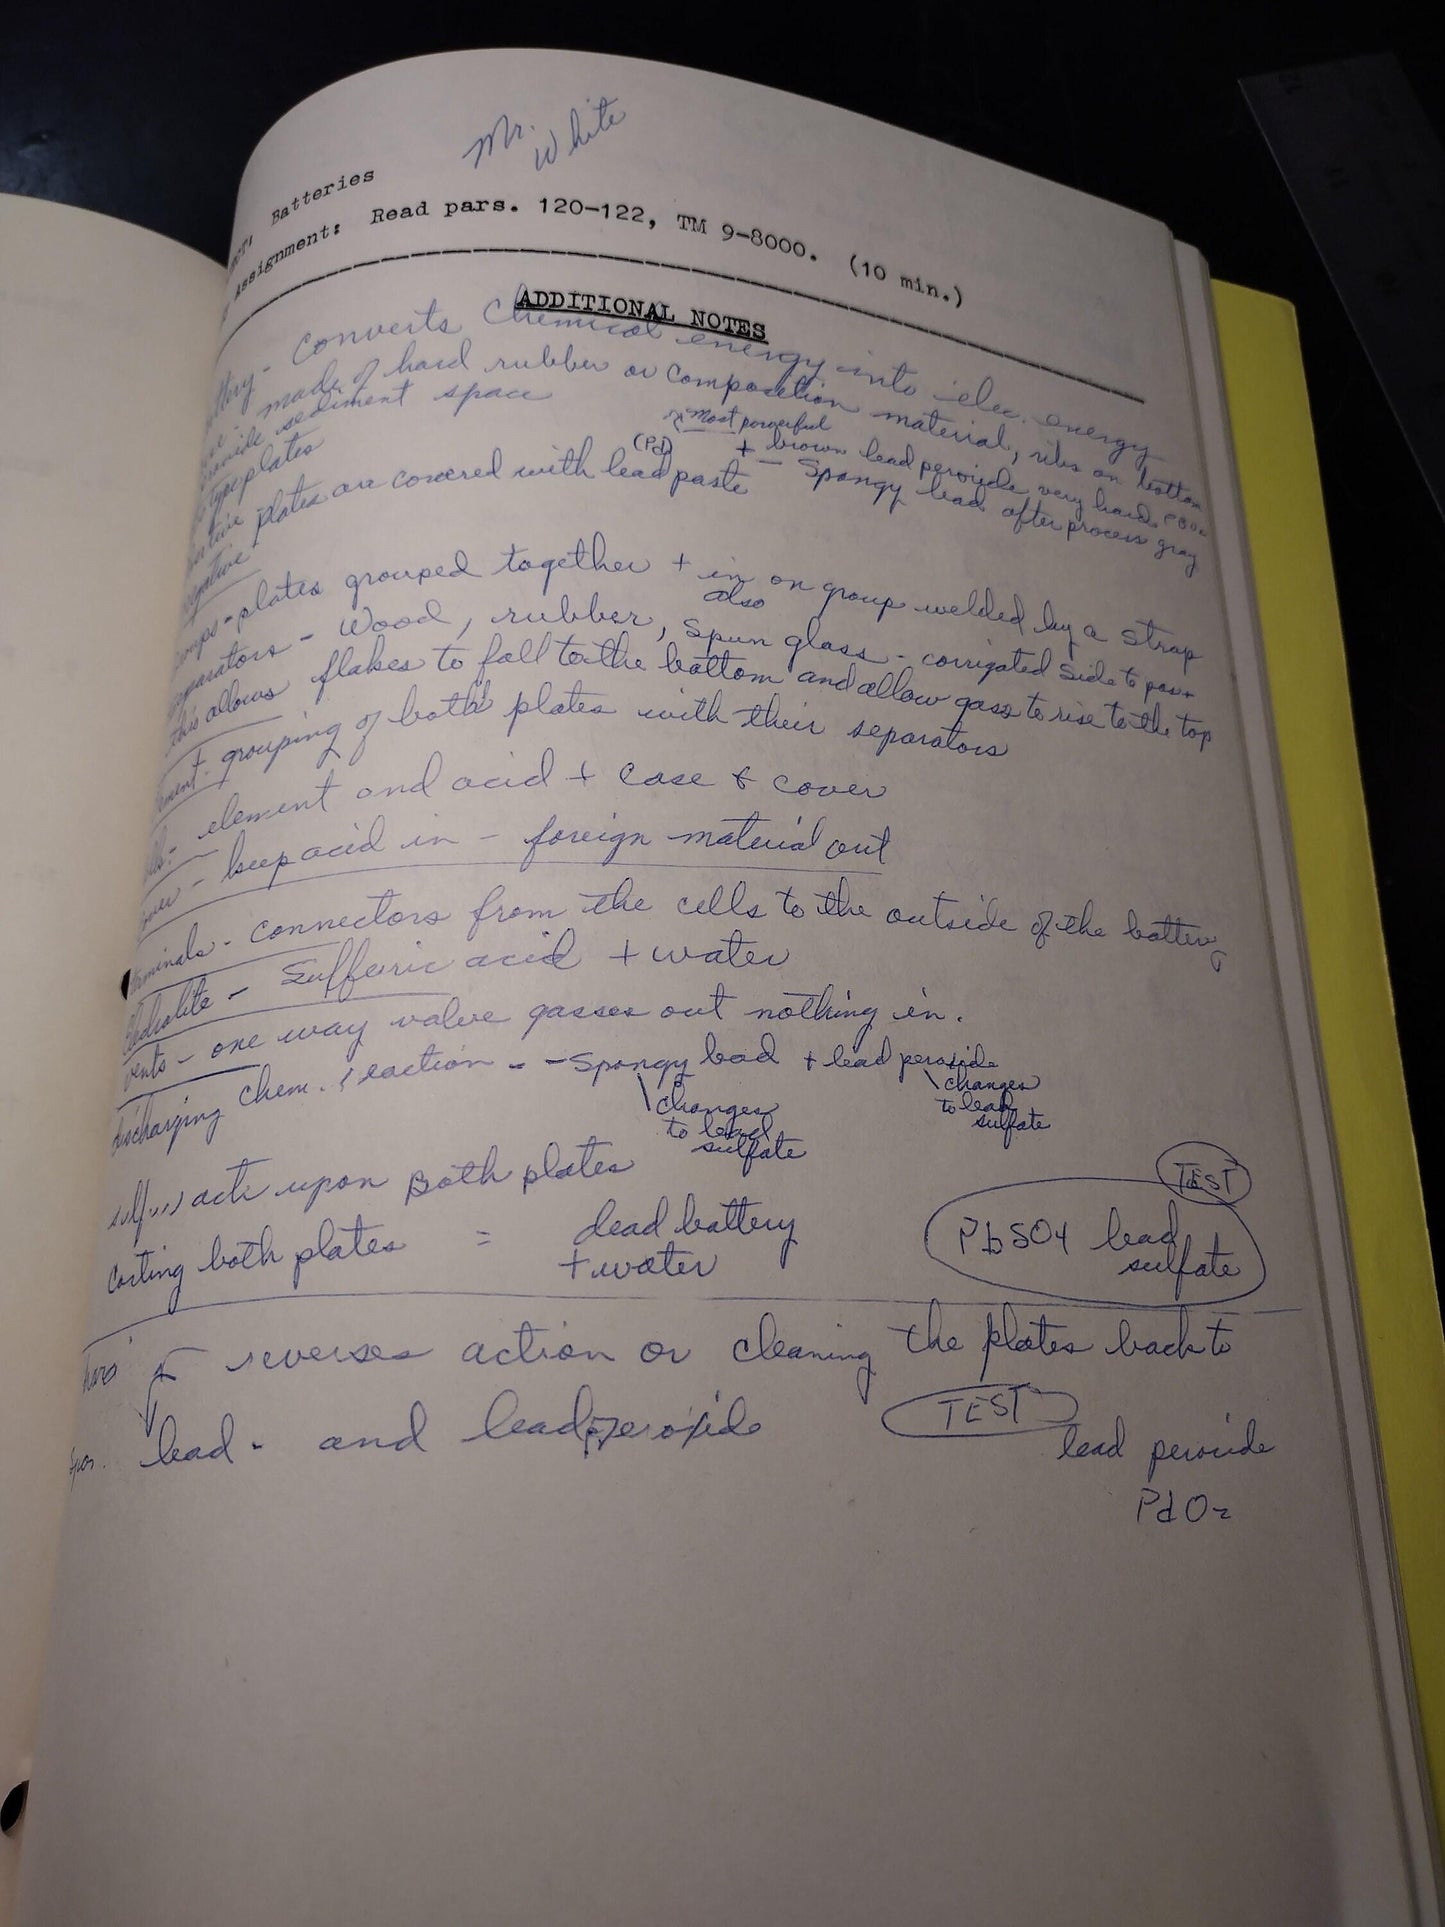 Mr.
White
Batteries
Assignment: Read pars. 120-122, TM 9-8000. (10 min.)
ADDITIONAL NOTES
converts chemical energy into elec. energy
made of hard rubber or composition material, ribs on bottom
provide sediment space
type plates
most powerful
+ brown lead peroxide very hard
(Pd)
plates are covered with lead paste
- Spongy lead after process gray
negative
plates grouped together + in on group welded by a strap
also
separators - Wood, rubber, spun glass - corrigated side to pos+
this allows flakes to fall to the bottom and allow gass to rise to the top
grouping of both plates with their separators
element and acid + case & cover
keep acid in - foreign material out
connectors from the cells to the outside of the battery
Electrolite - Sulfuric acid + water
vents - one way valve gasses out nothing in.
discharging chem. reaction - - Spongy lead + lead peroxide
changes
to lead
sulfate
changes
to lead
sulfate
acti upon Both plates
TEST
coating both plates = dead battery
+ water
PbSO4 lead
sulfate
reverses action or cleaning the plates back to
lead - and lead peroxide
TEST
lead peroxide
PdO2